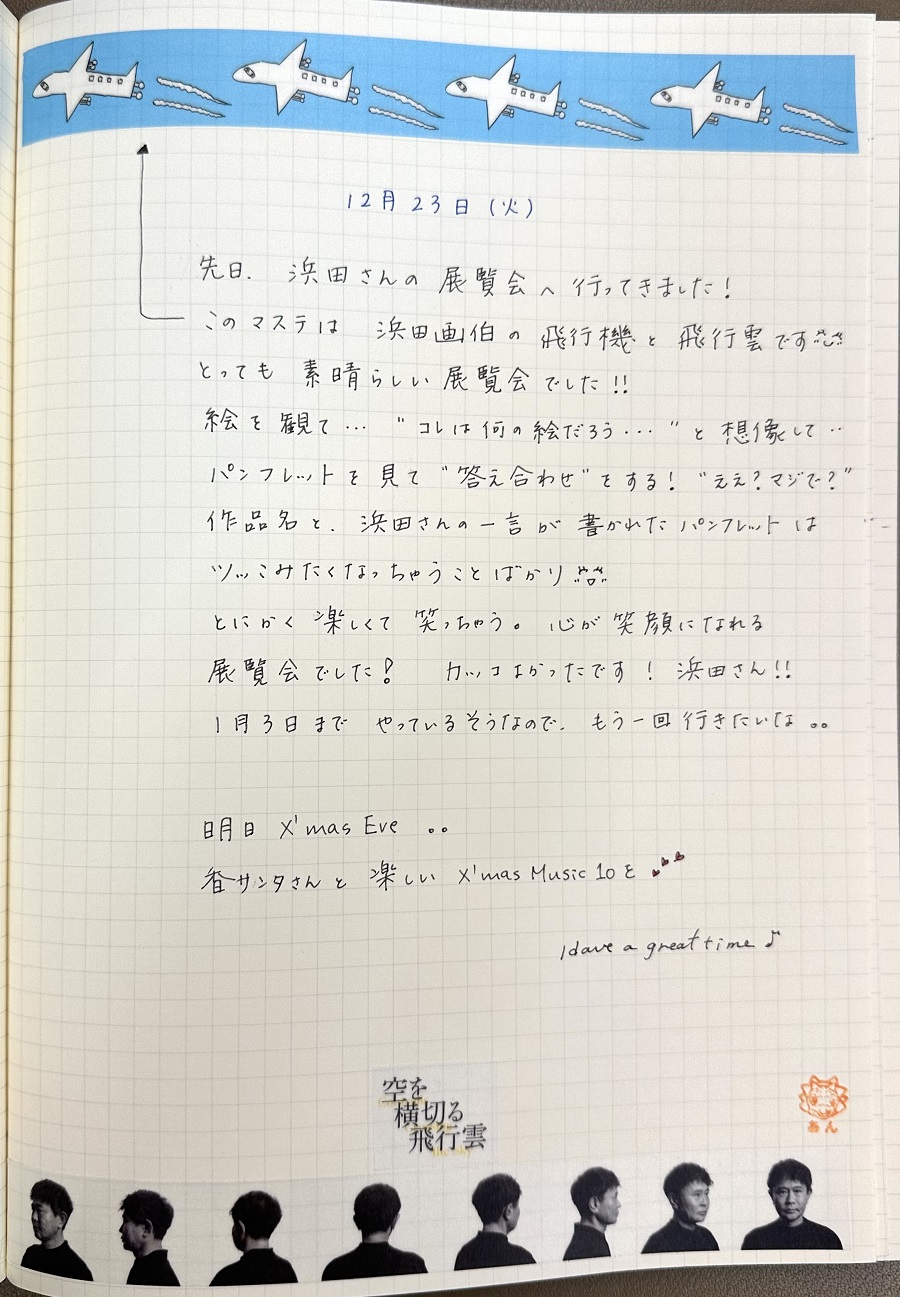 12月23日(火)
先日、浜田さんの展覧会へ行ってきました!
このマステは 浜田画伯の飛行機と飛行雲です
とっても素晴らしい展覧会でした!!
絵を観て… "コレは何の絵だろう…"と想像して‥
パンフレットを見て"答え合わせ"をする!"ええ?マジで?"
作品名と、浜田さんの一言が書かれたパンフレットは
ツッこみたくなっちゃうことばかり
とにかく楽しくて笑っちゃう。心が笑顔になれる
展覧会でした! カッコよかったです!浜田さん!!
1月3日までやっているそうなので、もう一回行きたいな。。
明日 X'mas Eve 。。
香サンタさんと楽しい X'mas Music 10を
Have a great time ♪
空を
横切る
飛行雲
あん